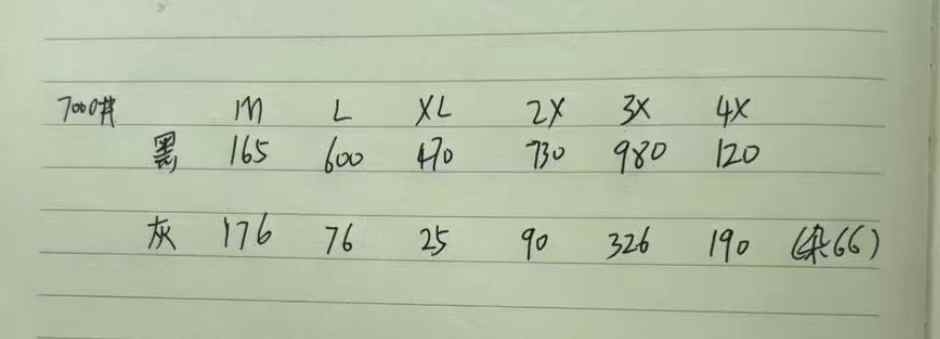 7000# M L XL 2X 3X 4X
黑 165 600 470 730 980 120
灰 176 76 25 90 326 190 (杂66)